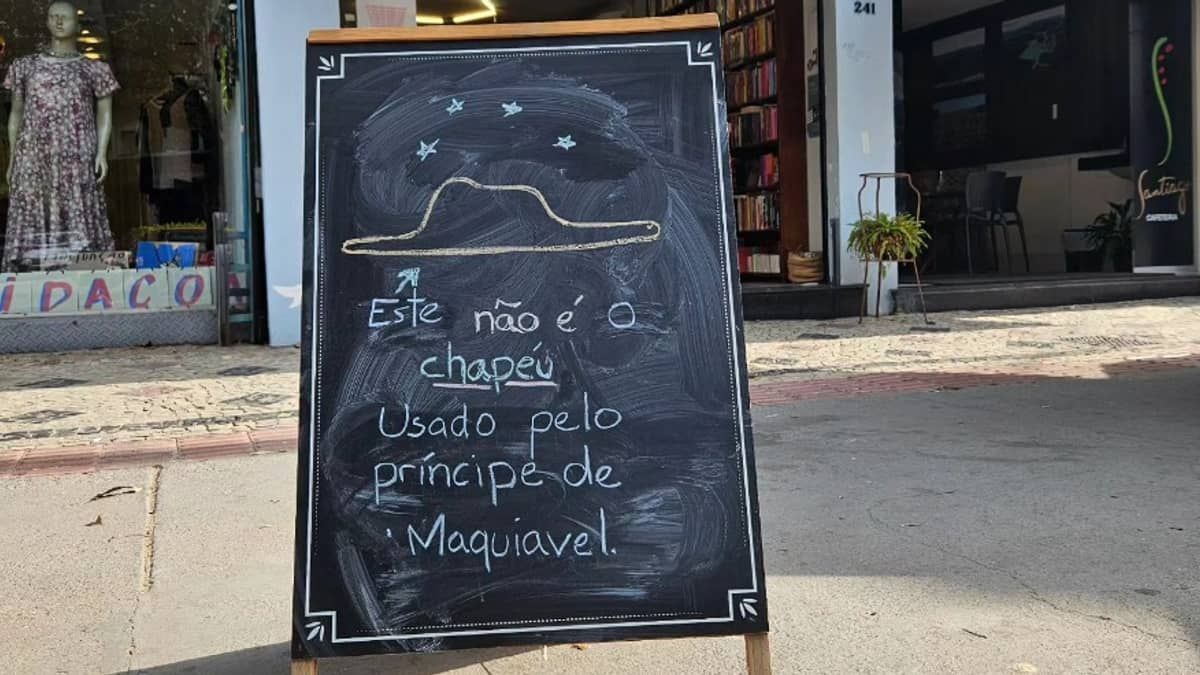 241
Este não é o
chapéu
Usado pelo
príncipe de
Maquiavel.
IDAÇO
CAFETERIA